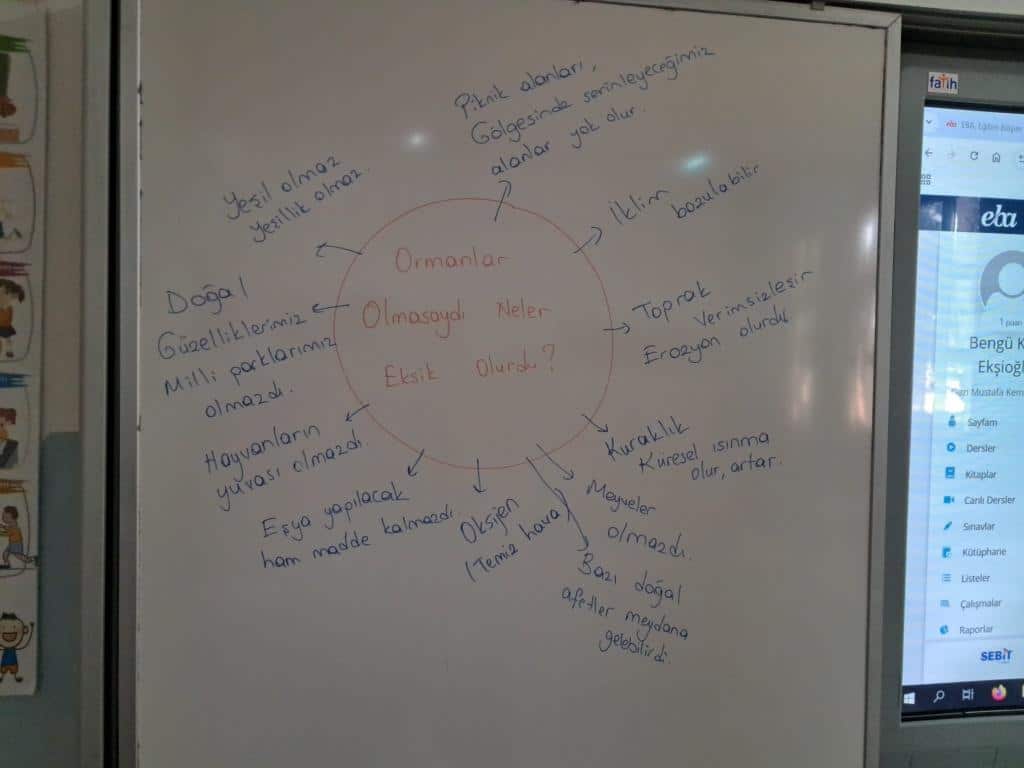 Ormanlar
Olmasaydı Neler
Eksik Olurdu?
Piknik alanları,
Gölgesinde serinleyeceğimiz
alanlar yok olur.
İklim
bozulabilir
Toprak
verimsizleşir
Erozyon olurdu
Kuraklık
Küresel ısınma
olur, artar.
Meyveler
olmazdı.
Bazı doğal
afetler meydana
gelebilirdi.
Oksijen
(Temiz hava)
Eşya yapılacak
ham madde kalmazdı.
Hayvanların
yuvası olmazdı.
Doğal
Güzelliklerimiz
Milli parklarımız
olmazdı.
Yeşil olmaz
yeşillik olmaz.
fatih
eba
EBA, Eğitim Bilişim
eba
1 puan
Bengü K
Ekşioğl
Gazi Mustafa Kem
Sayfam
Dersler
Kitaplar
Canlı Dersler
Sınavlar
Kütüphane
Listeler
Çalışmalar
Raporlar
SEBİT